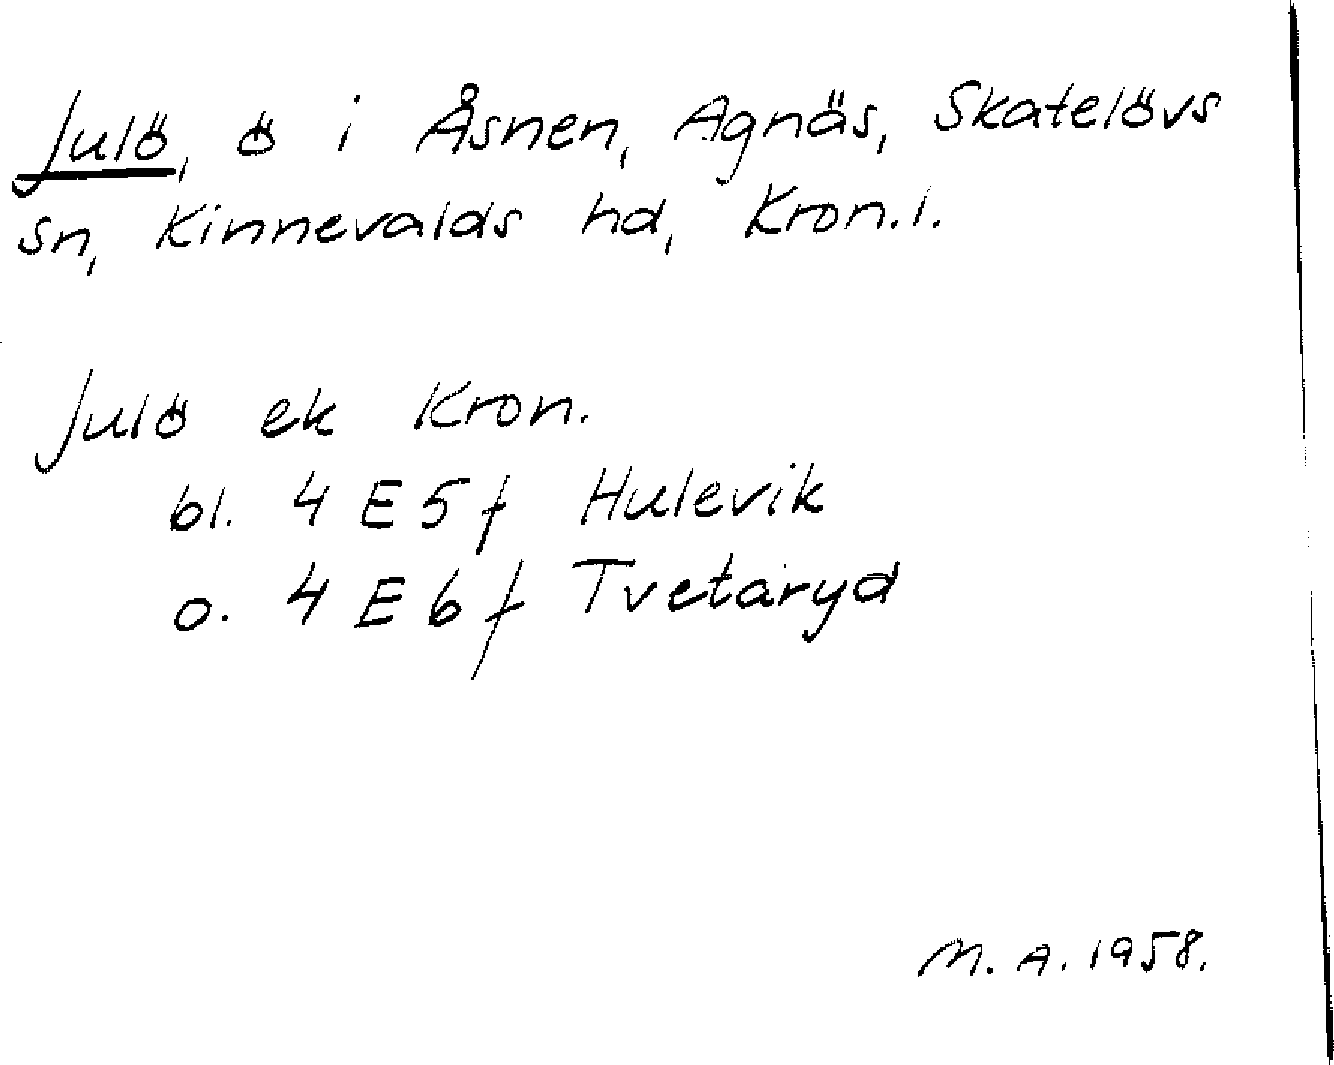 Julö, ö i Åsnen, Agnäs, Skatelövs
sn, Kinnevalds hd, Kron.l.
Julö ek Kron.
bl. 4 E 5 f Hulevik
o. 4 E 6 f Tvetaryd
M. A. 1958.